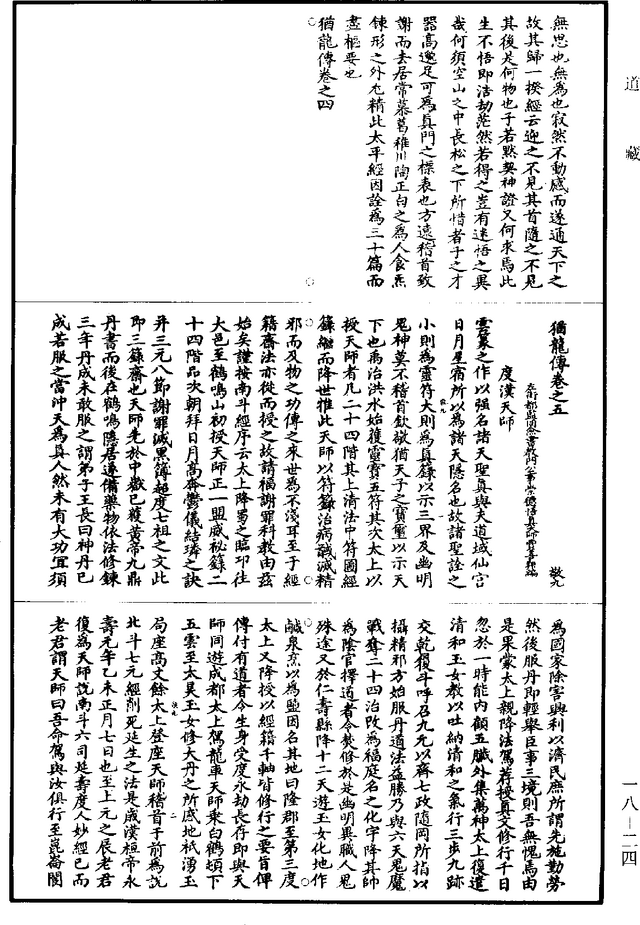 道藏
無思也無為也寂然不動感而遂通天下之
故其歸一揆經云迎之不見其首隨之不見
其後是何物也子若默契神證又何求焉此
生不悟即浩劫茫然若得之豈有迷悟之異
哉何須空山之中長松之下所惜者子之才
器高邈足可為真門之標表也方遠稽首致
謝而去居常慕葛稚川陶正白之為人食炁
鍊形之外尤精此太平經因詮為三十篇而
盡樞要也
猶龍傳卷之四
猶龍傳卷之五
敬九
度漢天師
雲篆之作以強名諸天聖真與夫道域仙宮
日月星宿所以為諸天隱名也故諸聖詮之
小則為靈符大則為真籙以示三界及幽明
鬼神莫不稽首欽敬猶天子之寶璽以示天
下也為治洪水始獲靈寶五符其次太上以
授天師者凡二十四階其上清法中符圖經
籙繼而降世惟此天師以符籙治病誡滅精
邪而及物之功傳之來世為不淺耳至于經
籍齋法亦從而授之故請福謝罪科教由茲
始矣謹按南斗經序云太上降蜀之臨邛往
大邑至鶴鳴山初授天師正一盟威秘籙二
十四階品次朝拜日月高奔鬱儀結璘之訣
并三元八節謝罪滅黑簿超度七祖之文此
即三籙齋也天師先於中嶽已獲黃帝九鼎
丹書而後在鶴鳴隱居遂備藥物依法修鍊
三年丹成未敢服之謂弟子王長曰神丹已
成若服之當沖天為真人然未有大功宜須
為國家除害興利以濟民庶所謂先施勤勞
然後服丹即輕舉臣事三境則吾無愧焉由
是果蒙太上親降法駕荐授真文修行千日
忽於一時能內顧五臟外集萬神太上復遣
清和玉女教以吐納清和之氣行三步九跡
交乾履斗呼召九元以齊七政隨罡所指以
攝精邪方始服丹道法益勝乃與六天鬼魔
戰奪二十四治改為福庭名之化宇降其帥
為陰官擇道者令焚修於是幽明異職人鬼
殊途又於仁壽縣降十二天遊玉女化地作
鹹泉烹以為鹽因名其地曰陵郡至第三度
太上又降授以經籍千軸皆修行之要旨俾
傳付有道者令生身受度永劫長存即與天
師同遊成都太上駕龍車天師乘白鶴頃下
五雲至太昊玉女修大丹之所感地祇湧玉
局座高丈餘太上登座天師稽首于前為說
北斗七元經削死延生之法是歲漢桓帝永
壽元年乙未正月七日也至上元之辰老君
復為天師說南斗六司延壽度人妙經已而
老君謂天師曰吾命駕與汝俱行至崑崙閬
一八-二四